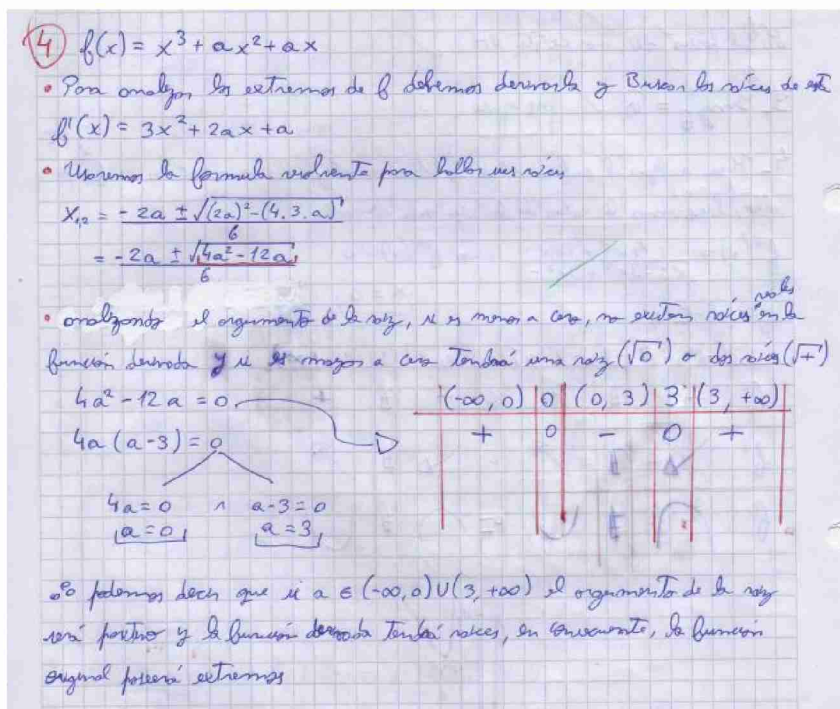 4 f(x) = x³ + ax² + ax
• Para analizar los extremos de f debemos derivarla y Buscar las raíces de esta
f'(x) = 3x² + 2ax + a
• Usaremos la formula resolvente para hallar sus raíces
X₁,₂ = (-2a ± √((2a)² - (4.3.a))) / 6
= (-2a ± √(4a² - 12a)) / 6
• analizando el argumento de la raíz, si es menor a cero, no existen raíces reales en la
función derivada y si es mayor a cero Tendrá una raíz (√0) o dos raíces (√+)
4a² - 12a = 0
4a (a-3) = 0
4a = 0 ∧ a-3 = 0
a = 0 a = 3
(-∞, 0) 0 (0, 3) 3 (3, +∞)
+ 0 - 0 +
∴ podemos decir que si a ∈ (-∞, 0) U (3, +∞) el argumento de la raíz
será positivo y la función derivada Tendrá raíces, en consecuente, la función
original poseerá extremos